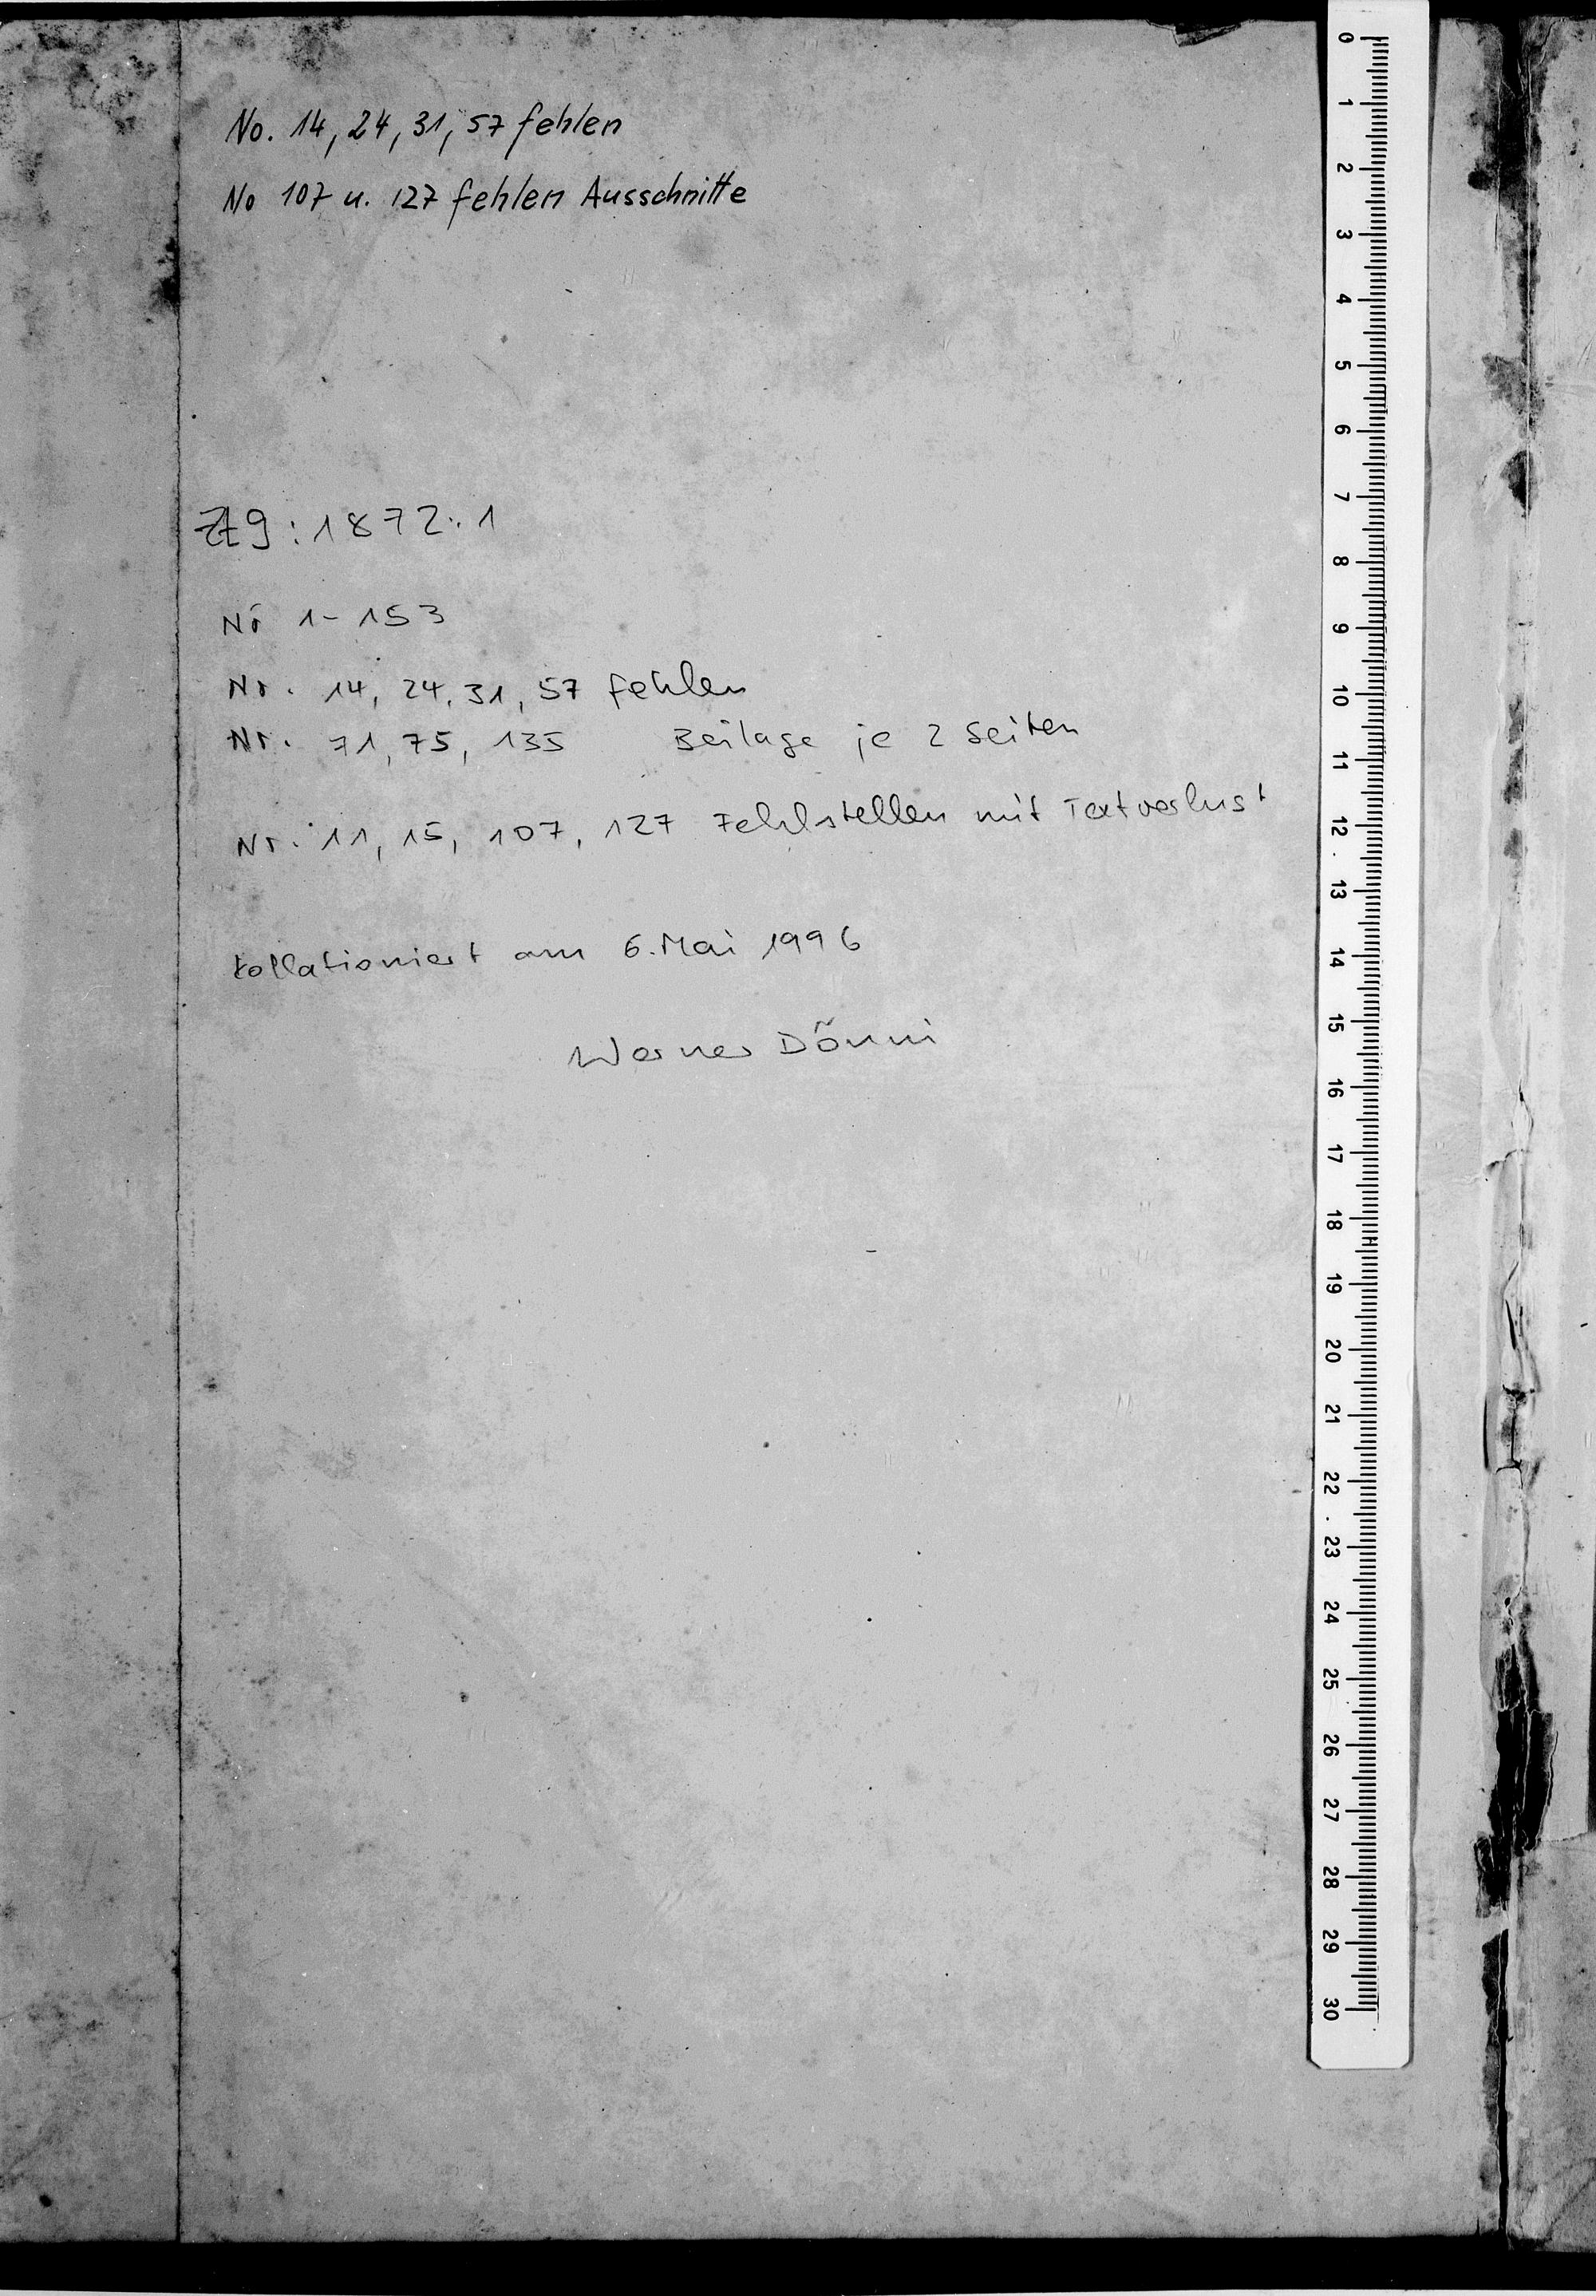 No. 14, 24, 31, 57 fehlen
No 107 u. 127 fehlen Ausschnitte
1872:1
Nr 1-153
Nr. 14, 24, 31, 57 fehlen
Nr. 71, 75, 135 Beilage je 2 Seiten
Nr. 11, 15, 107, 127 Fehlstellen mit Textverlust
kollationiert am 6. Mai 1996
Werner Dönni
0
1
2
3
4
5
6
7
8
9
10
11
12
13
14
15
16
17
18
19
20
21
22
23
24
25
26
27
28
29
30